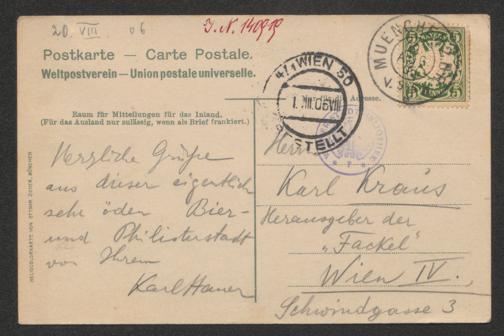 20. VIII 06
I. N. 140919
Postkarte — Carte Postale.
Weltpostverein — Union postale universelle.
Raum für Mitteilungen für das Inland.
(Für das Ausland nur zulässig, wenn als Brief frankiert.)
Nur für die Adresse.
4/1 WIEN 50
BESTELLT
MUENCHEN
Herzliche Grüsse
aus dieser eigentlich
sehr öden Bier-
und Philisterstadt
von Ihrem
Karl Hauer
Herrn
Karl Kraus
Herausgeber der
„Fackel"
Wien IV.,
Schwindgasse 3